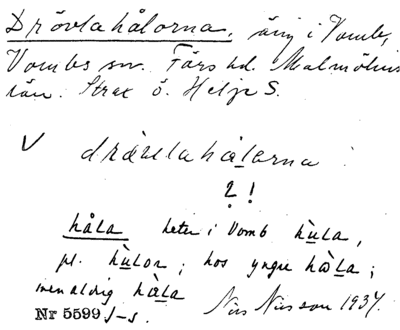 Drövlahålorna, äng i Vomb,
Vombs sn. Färs hd. Malmöhus
län. Strax ö. Helje S.
V drävlahålorna
? !
håla heter i Vomb hùla,
pl. hùlor; hos yngre hàla;
men aldrig hàla
Nr 5599 Nils Nilsson 1937.